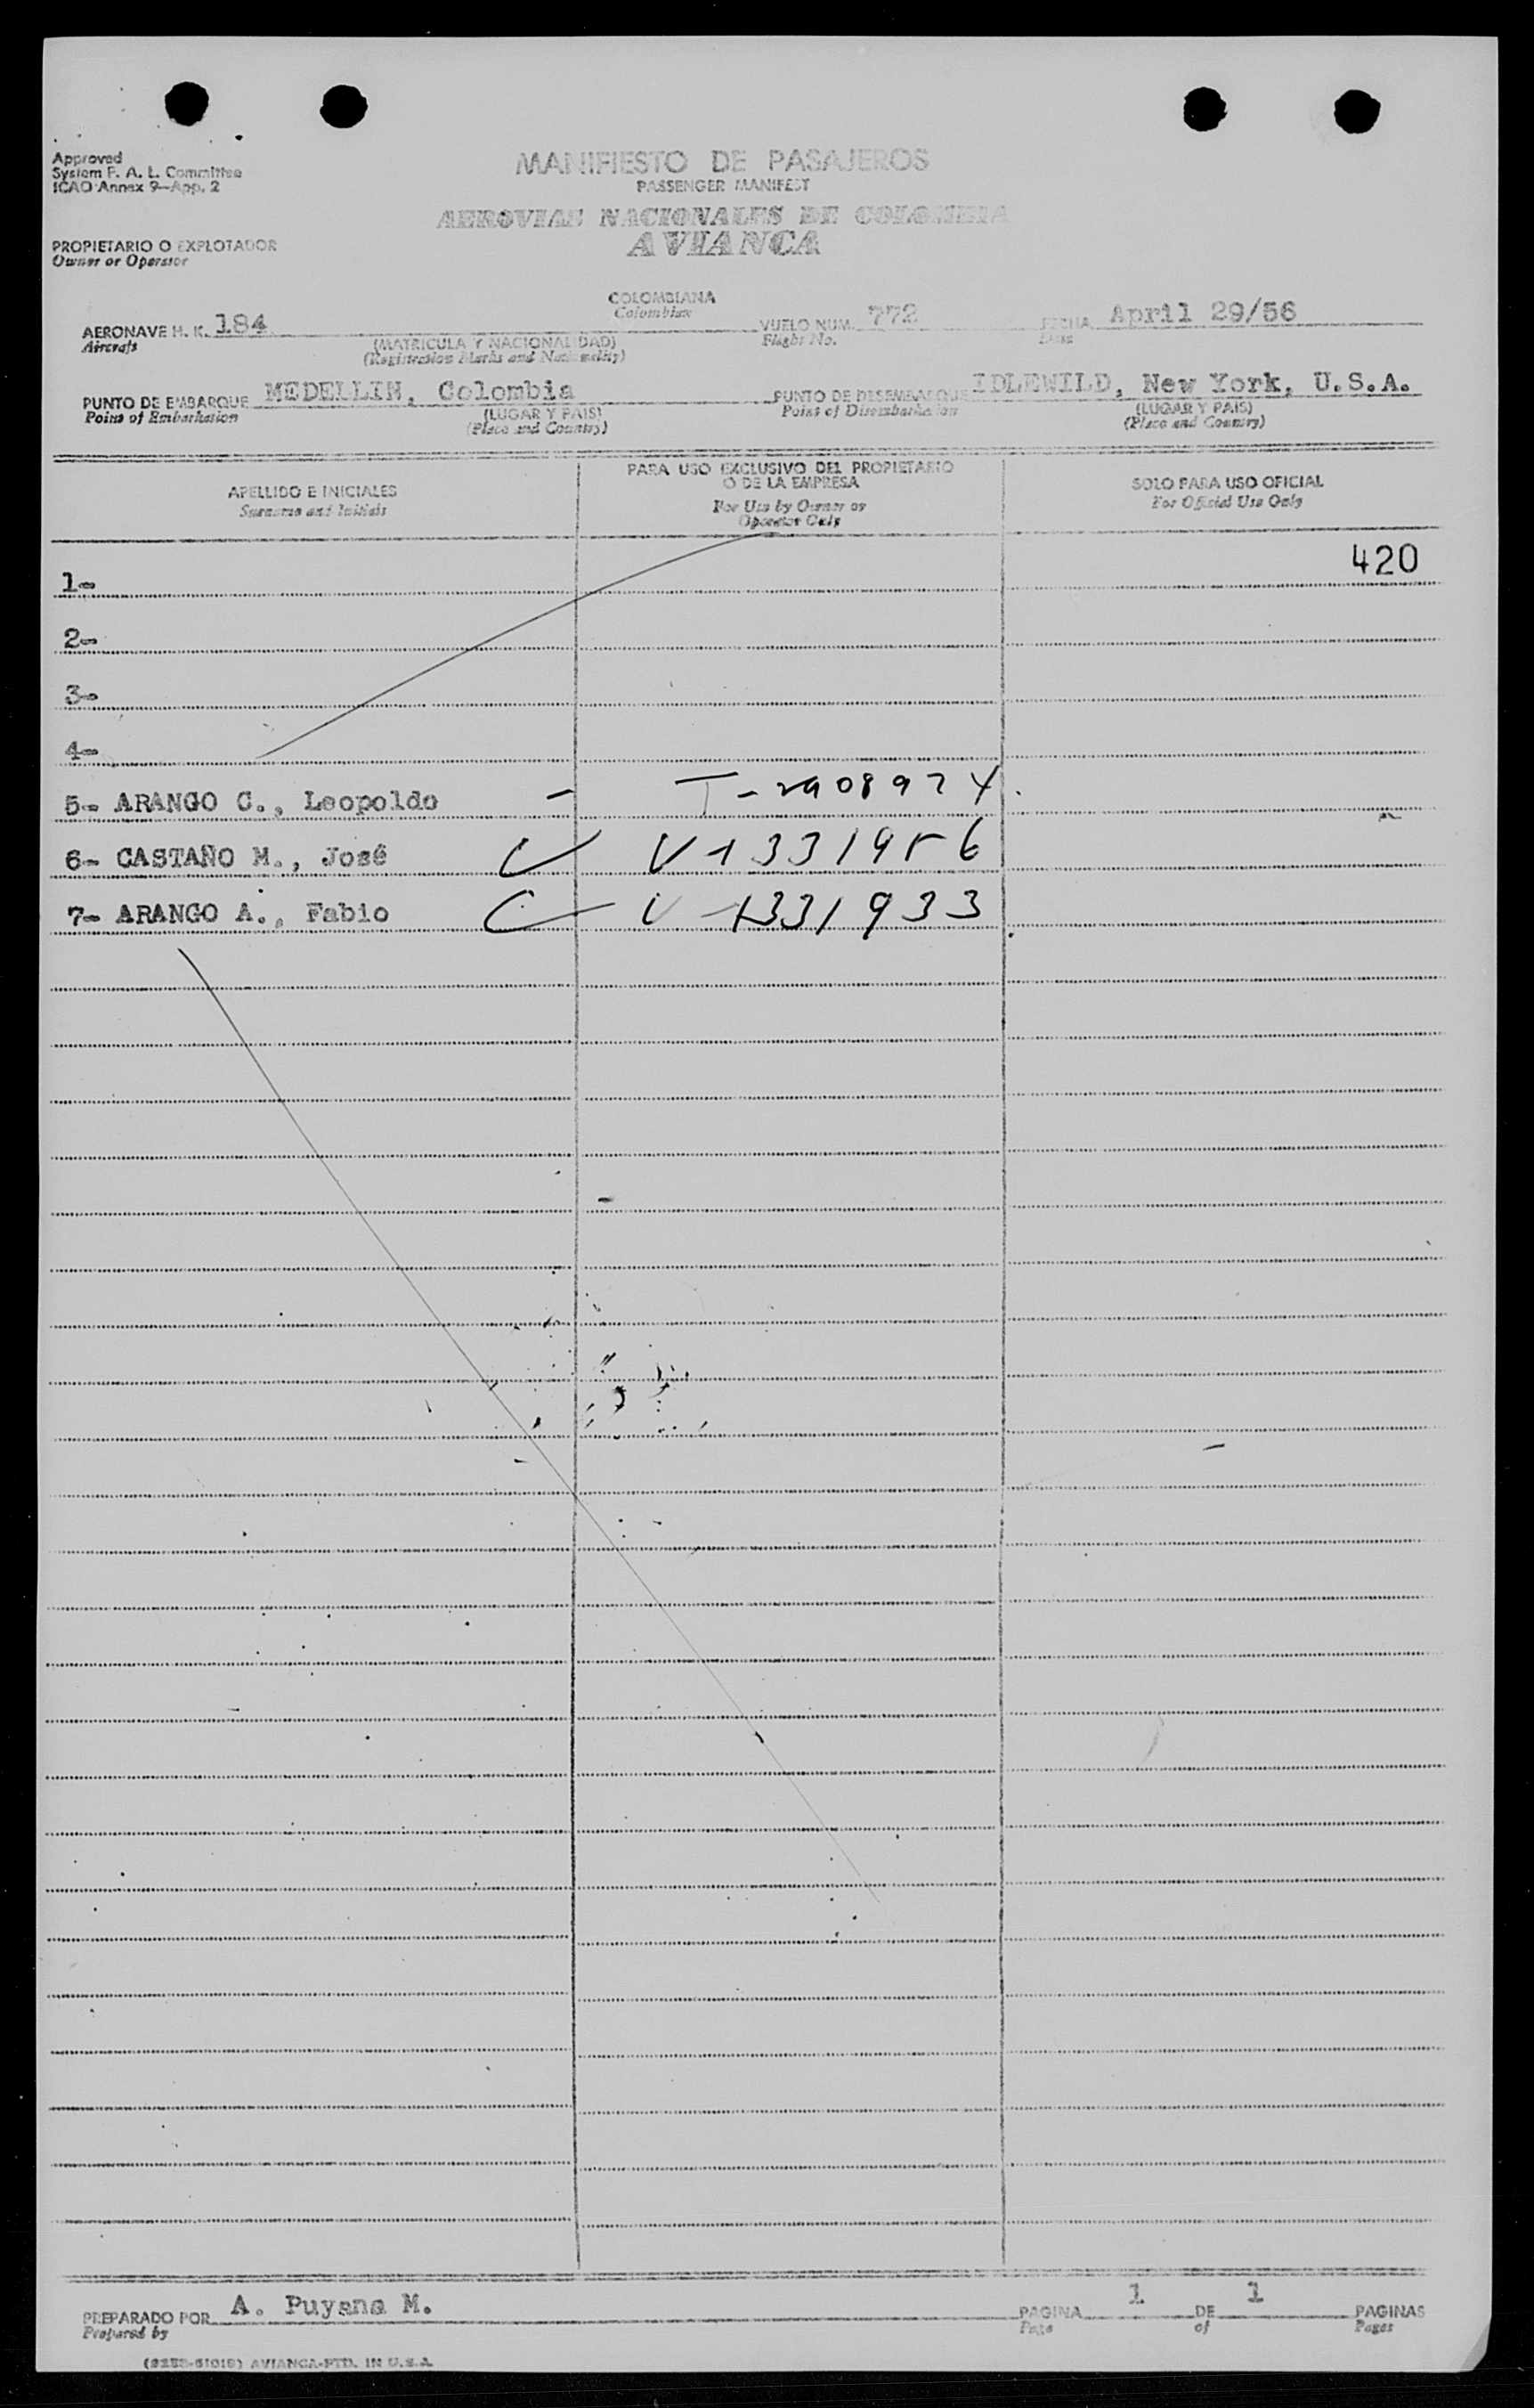 Approved
System F. A. L. Committee
ICAO Annex 9—App. 2
MANIFIESTO DE PASAJEROS
PASSENGER MANIFEST
AEROVIAS NACIONALES DE COLOMBIA
AVIANCA
PROPIETARIO O EXPLOTADOR
Owner or Operator
COLOMBIANA
Colombian
AERONAVE H. K. 184 VUELO NUM. 772 FECHA April 29/56
Aircraft (MATRICULA Y NACIONALIDAD) Flight No. Date
(Registration Marks and Nationality)
PUNTO DE EMBARQUE MEDELLIN, Colombia PUNTO DE DESEMBARQUE IDLEWILD, New York, U.S.A.
Point of Embarkation (LUGAR Y PAIS) Point of Disembarkation (LUGAR Y PAIS)
(Place and Country) (Place and Country)
APELLIDO E INICIALES
Surname and Initials
PARA USO EXCLUSIVO DEL PROPIETARIO
O DE LA EMPRESA
For Use by Owner or
Operator Only
SOLO PARA USO OFICIAL
For Official Use Only
420
1-
2-
3-
4-
5- ARANGO C., Leopoldo
6- CASTAÑO M., José V1331956
7- ARANGO A., Fabio V-1331933
PREPARADO POR A. Puyana M. PAGINA 1 DE 1 PAGINAS
Prepared by Page of Pages
AVIANCA-PTD. IN U.S.A.